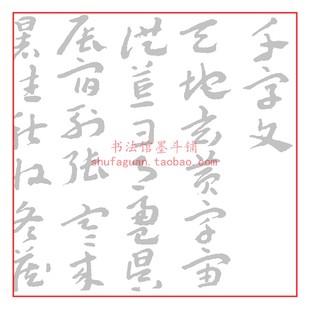 千字文
天地玄黄宇宙
洪荒日月盈昃
辰宿列張寒来
暑往秋收冬藏
书法馆墨斗铺
shufaguan.taobao.com